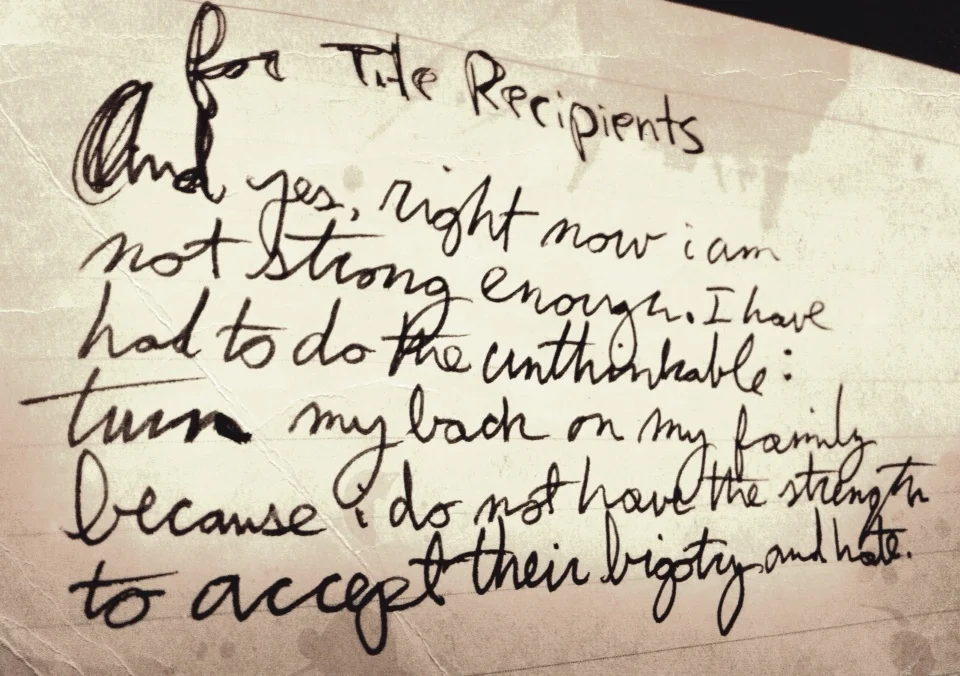 for THe Recipients
And yes, right now i am
not strong enough. I have
had to do the unthinkable:
turn my back on my family
because i do not have the strength
to accept their bigotry and hate.